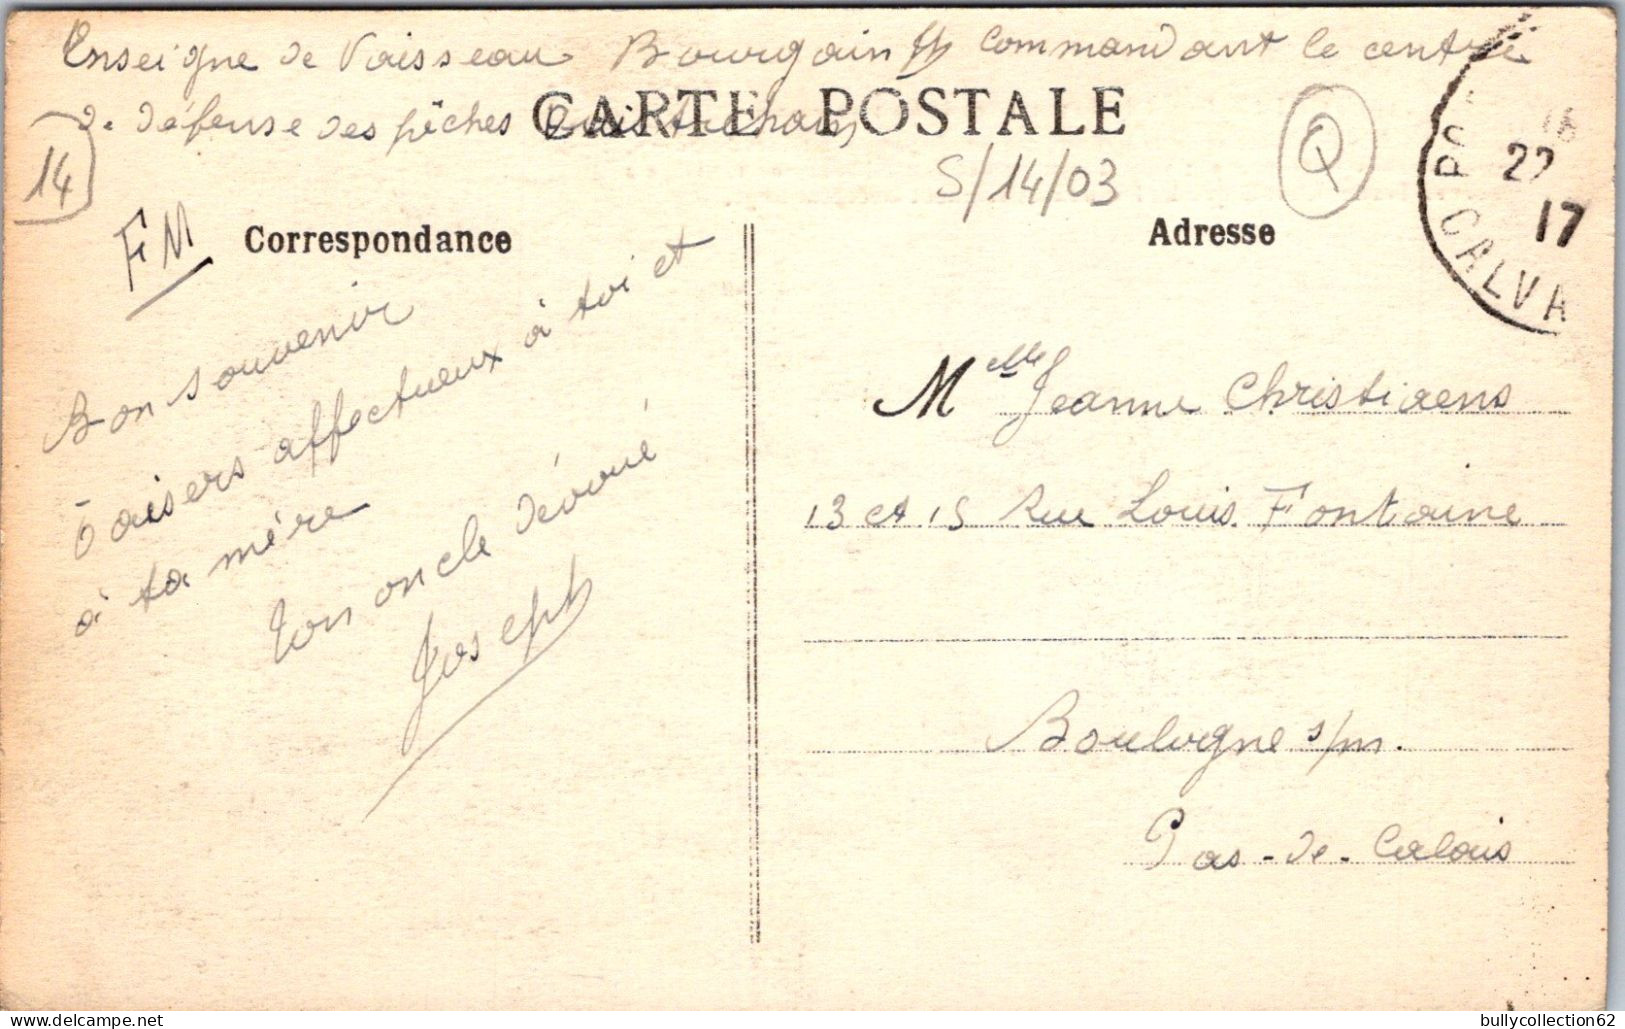 Enseigne de Vaisseau Bourgain Commandant le centre
de défense des pêches Ouistreham
CARTE POSTALE
14
S/14/03
Q
22
17
CALVA
FM
Correspondance
Adresse
Bon souvenir
baisers affectueux à toi et
à ta mère
Ton oncle dévoué
Joseph
Melle Jeanne Christiaens
13 et 15 Rue Louis Fontaine
Boulogne s/m.
Pas-de-Calais
bullycollection62